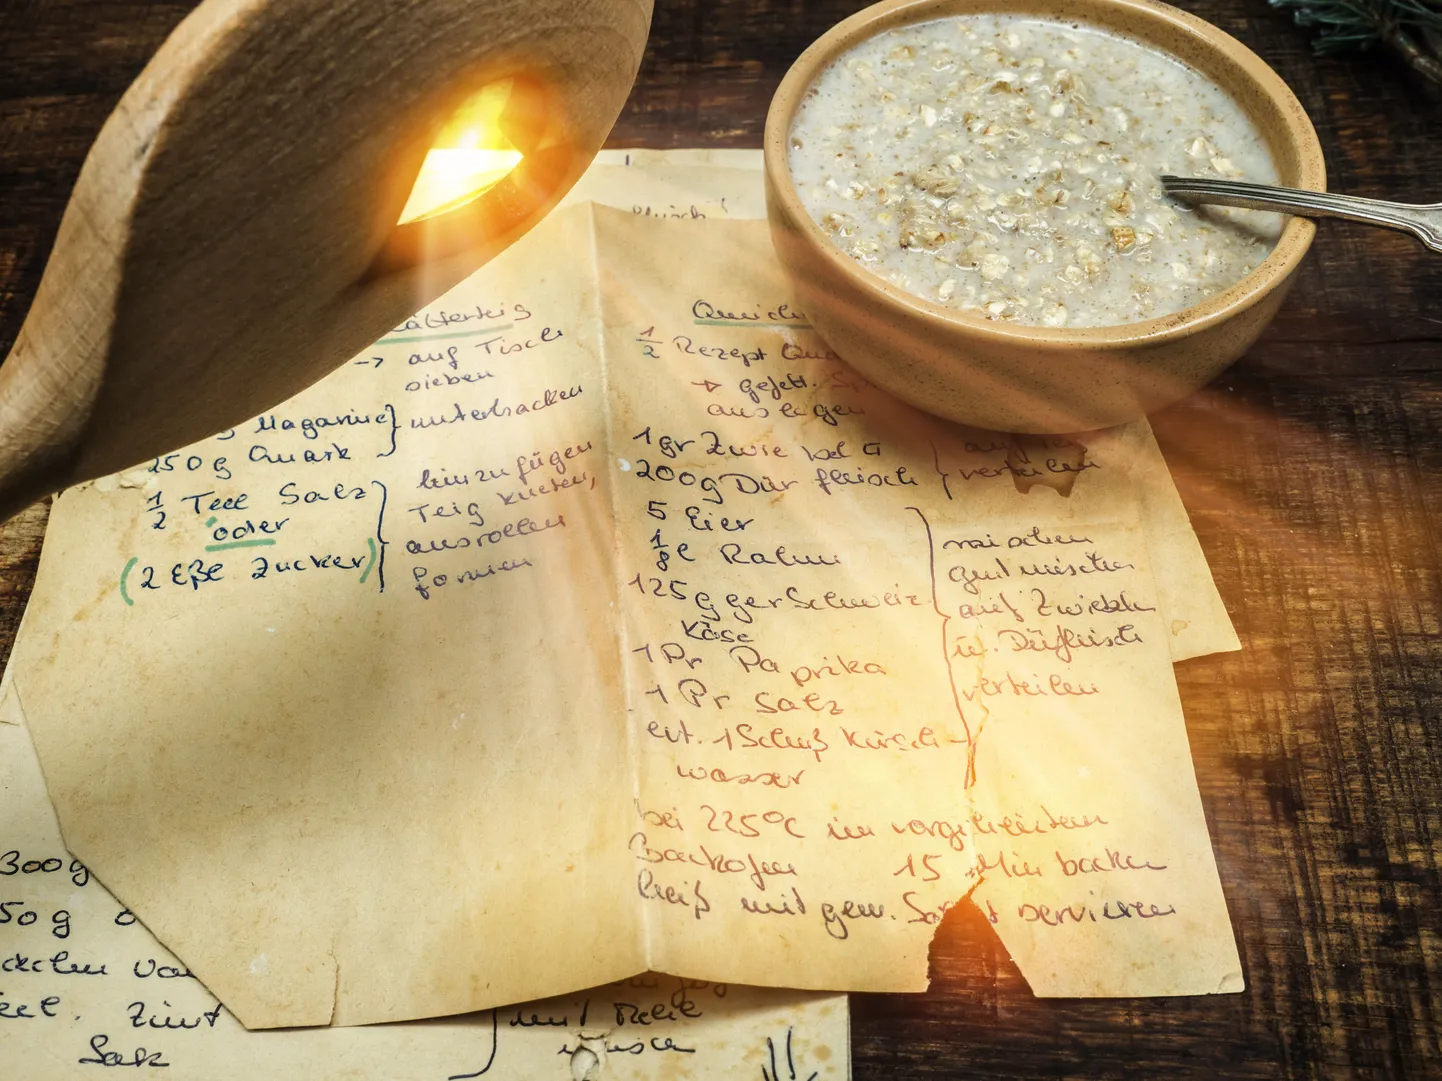 auf Tisch
sieben
Magarine } unterhacken
250 g Quark
1/2 Teel Salz
oder
(2 Eßl Zucker)
hinzufügen
Teig kneten,
ausrollen
formen
Quich
1/2 Rezept Qua
→ gefett.
auslegen
1 gr Zwiebel
200g Dürfleisch
verteilen
5 Eier
1/8 l Rahm
125 g ger Schweiz
Käse
1 Pr Paprika
1 Pr Salz
evt. 1 Schuß Kirsch
wasser
mischen
auf Zwiebeln
u. Dürfleisch
verteilen
bei 225°C im vorgeheizten
Backofen 15 Min backen
heiß mit gem. servieren
300g
50 g
Zimt
Salz
mit